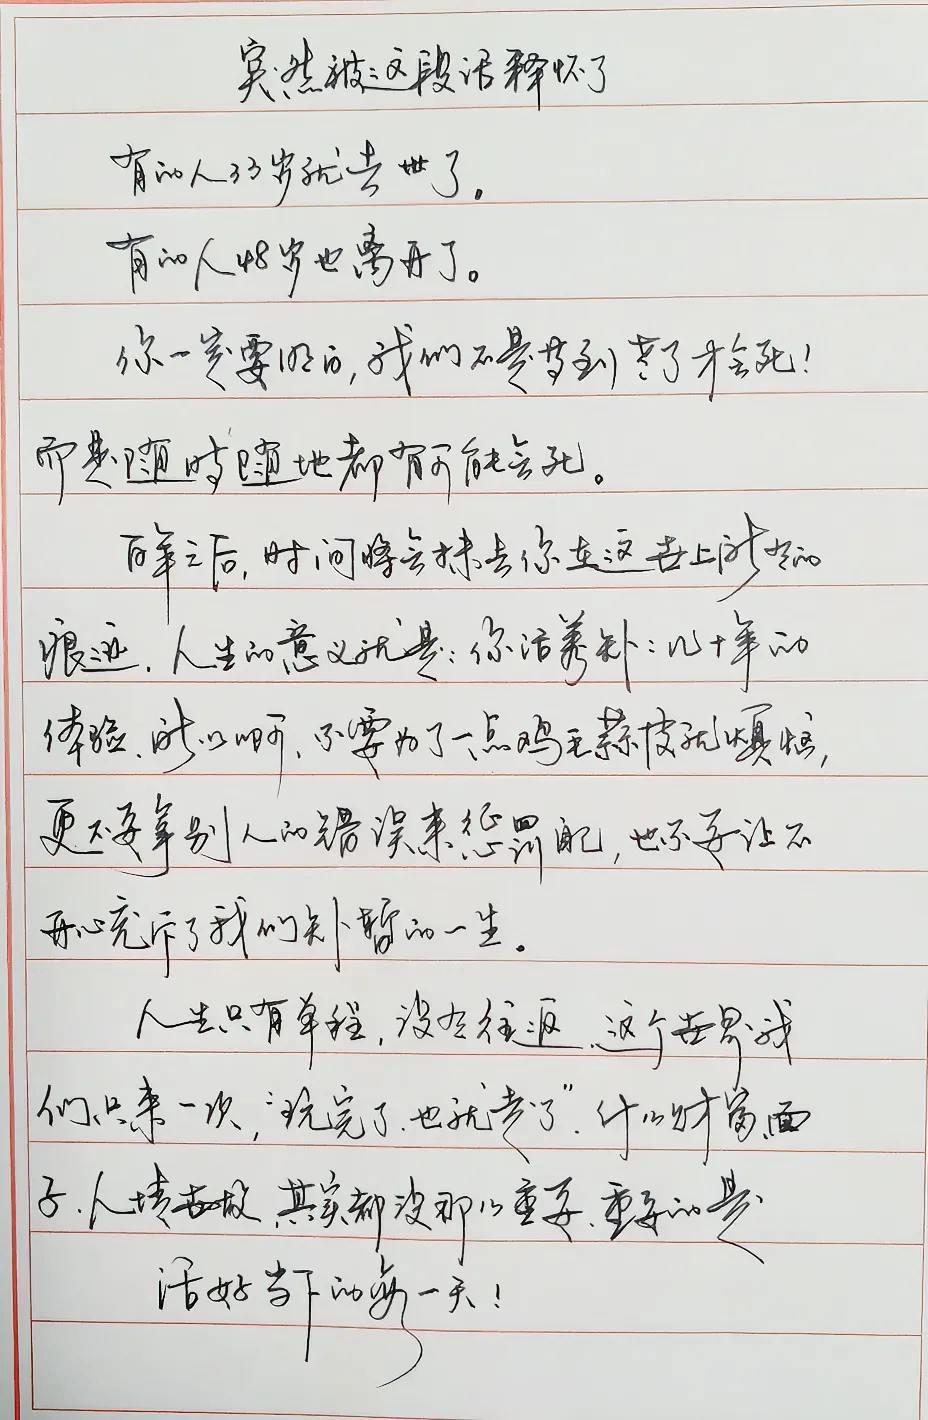 突然被这段话释怀了
有的人33岁就去世了。
有的人48岁也离开了。
你一定要明白,我们不是等到老了才会死!
而是随时随地都有可能会死。
百年之后,时间将会抹去你在这世上所有的
痕迹.人生的意义就是:你活着那几十年的
体验.所以啊,不要为了一点鸡毛蒜皮就烦恼,
更不要拿别人的错误来惩罚自己,也不要让不
开心充斥了我们短暂的一生。
人生只有单程,没有往返.这个世界我
们只来一次,“玩完了.也就走了”.什么财富、面
子.人情世故.其实都没那么重要.重要的是
活好当下的每一天!